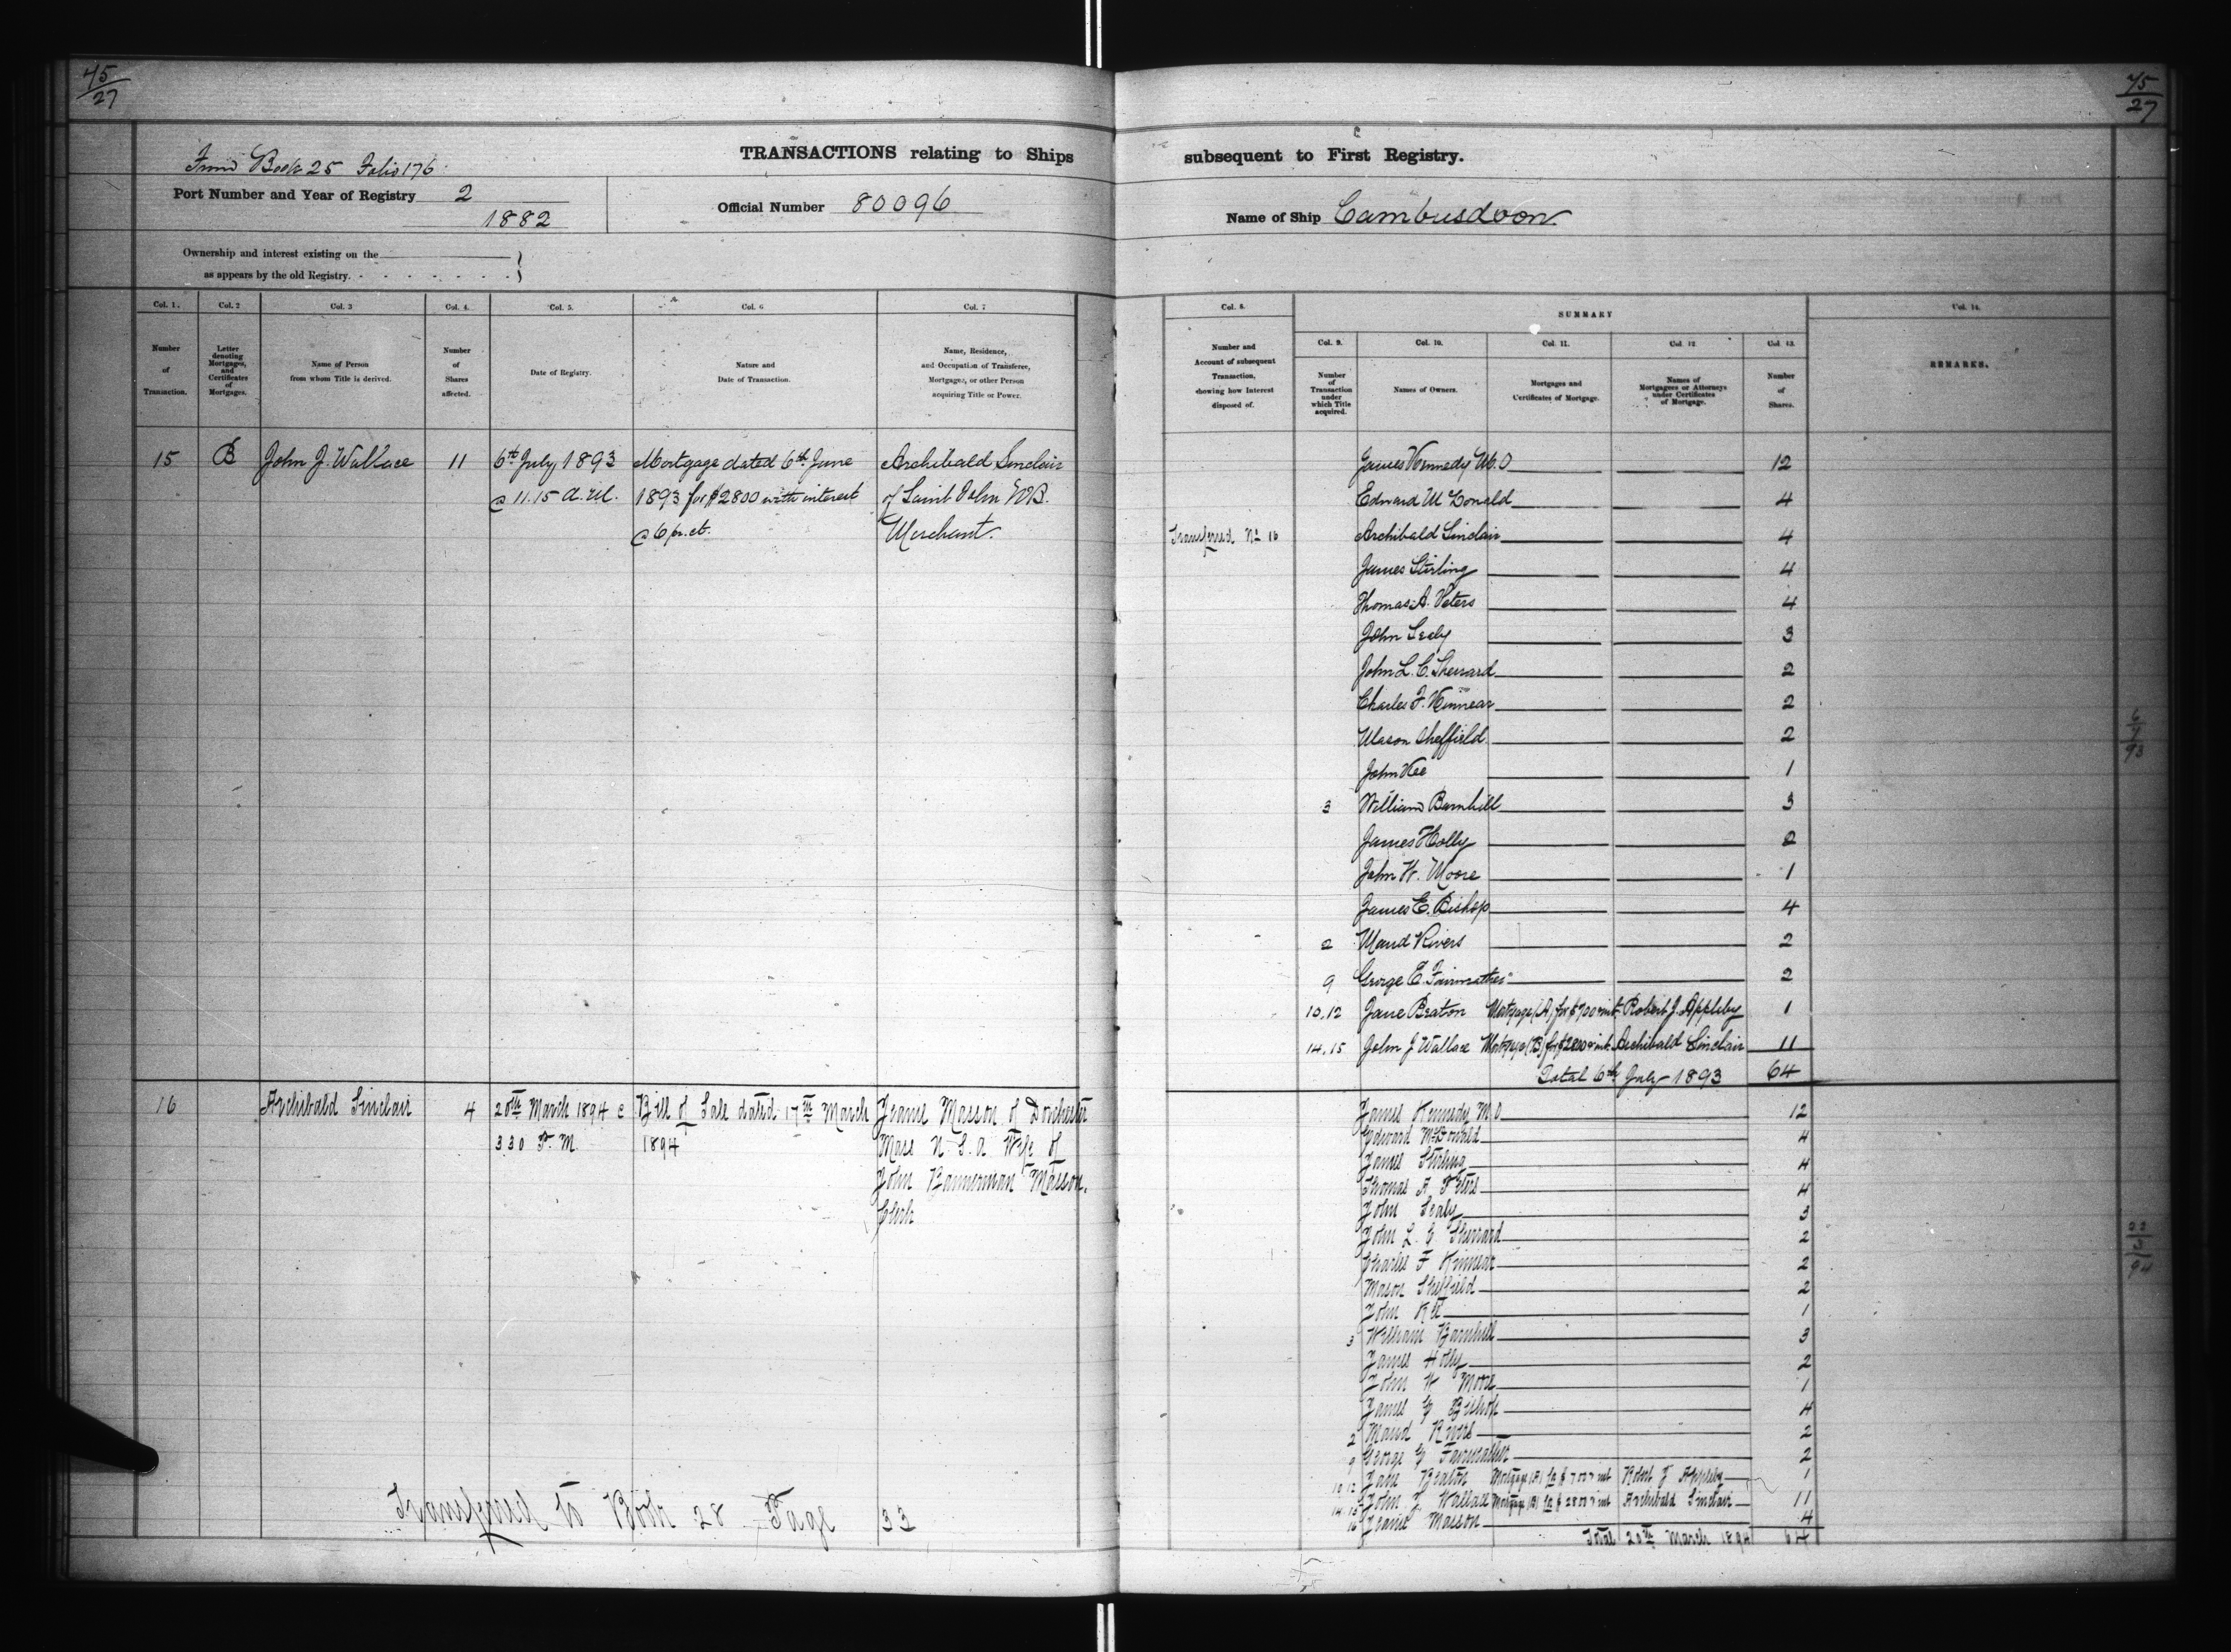 45
27
45
27
From Book 25 Folio 176
TRANSACTIONS relating to Ships subsequent to First Registry.
Port Number and Year of Registry 2
1882
Official Number 80096
Name of Ship Cambusdoon
Ownership and interest existing on the
as appears by the old Registry.
Col. 1. Col. 2 Col. 3 Col. 4. Col. 5. Col. 6 Col. 7
Number of Transaction.
Letter denoting Mortgages, and Certificates of Mortgages.
Name of Person from whom Title is derived.
Number of Shares affected.
Date of Registry.
Nature and Date of Transaction.
Name, Residence, and Occupation of Transferee, Mortgagee, or other Person acquiring Title or Power.
15 B John J. Wallace 11 6th July 1893 Mortgage dated 6th June Archibald Sinclair
@ 11.15 a.m. 1893 for $2800 with interest of Saint John N.B.
@ 6 pr. ct. Merchant.
16 Archibald Sinclair 4 20th March 1894 @ Bill of Sale dated 17th March Jeanie Masson of Dorchester
3 30 P.M. 1894 Mass U.S.A. Wife of
John Bannerman Masson.
Clerk
Transferred to Book 28 Page 33
Col. 8. SUMMARY Col. 14.
Number and Account of subsequent Transaction, showing how Interest disposed of.
Col. 9. Col. 10. Col. 11. Col. 12 Col. 13.
Number of Transaction under which Title acquired.
Names of Owners.
Mortgages and Certificates of Mortgage.
Names of Mortgagees or Attorneys under Certificates of Mortgage.
Number of Shares.
REMARKS.
James Kennedy M.O 12
Edward McDonald 4
Transferred No 16 Archibald Sinclair 4
James Stirling 4
Thomas A. Peters 4
John Sealy 3
John L. C. Sherrard 2
Charles F. Kinnear 2
Mason Sheffield 2
John Kee 1
3 William Barnhill 3
James Holly 2
John W. Moore 1
James E. Bishop 4
2 Maud Rivers 2
9 George E. Fairweather 2
10.12 Jane Beaton Mortgage (A) for $700 & int. Robert J. Appleby 1
14.15 John J Wallace Mortgage (B) for $2800 & int. Archibald Sinclair 11
Total 6th July 1893 64
6
7
93
James Kennedy M.O 12
Edward McDonald 4
James Stirling 4
Thomas A Peters 4
John Sealy 3
John L. C Sherrard 2
Charles F Kinnear 2
Mason Sheffield 2
John Kee 1
3 William Barnhill 3
James Holly 2
John W Moore 1
James E Bishop 4
2 Maud Rivers 2
9 George E Fairweather 2
10 12 Jane Beaton Mortgage (A) for $700 & int Robert J Appleby 1
14 15 John J Wallace Mortgage (B) for $2800 & int Archibald Sinclair 11
16 Jeanie Masson 4
Total 20th March 1894 64